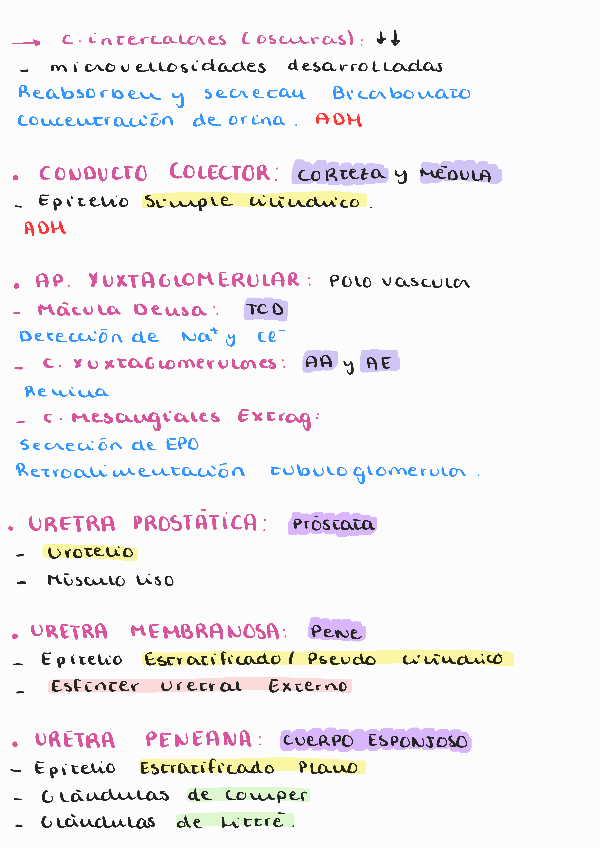 → C. intercalares (oscuras): ↓↓
- microvellosidades desarrolladas
Reabsorben y secretan Bicarbonato
concentración de orina. ADH
• CONDUCTO COLECTOR: CORTEZA y MÉDULA
- Epitelio Simple cilíndrico.
ADH
• AP. YUXTAGLOMERULAR: Polo vascular
- Mácula Densa: TCD
Detección de Na⁺ y Cl⁻
- C. Yuxtaglomerulares: AA y AE
Renina
- C. Mesangiales Extrag:
Secreción de EPO
Retroalimentación tubuloglomerular.
• URETRA PROSTÁTICA: Próstata
- Urotelio
- Músculo liso
• URETRA MEMBRANOSA: Pene
- Epitelio Estratificado / Pseudo cilíndrico
- Esfínter Uretral Externo
• URETRA PENEANA: CUERPO ESPONJOSO
- Epitelio Estratificado Plano
- Glándulas de Cowper
- Glándulas de Littré.